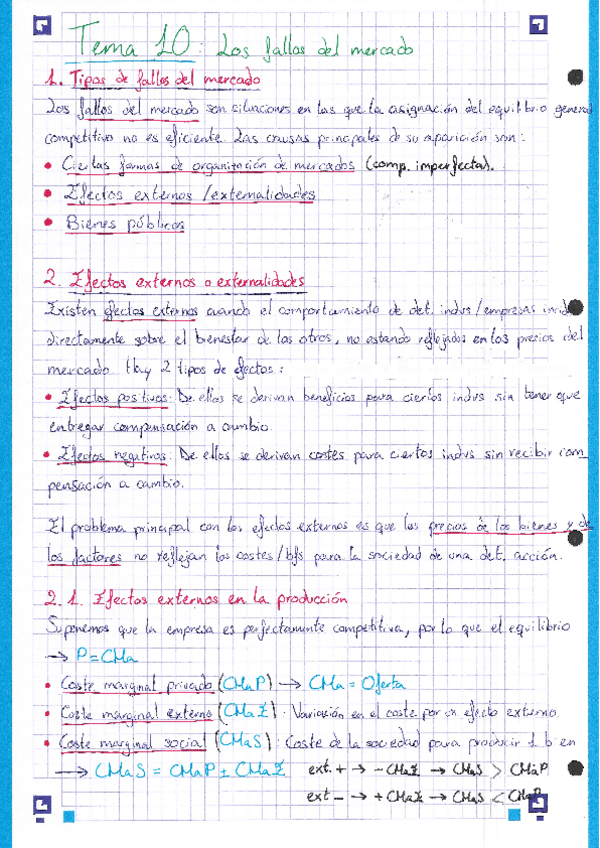 Tema 10: Los fallos del mercado
1. Tipos de fallos del mercado
Los fallos del mercado son situaciones en las que la asignación del equilibrio general
competitivo no es eficiente. Las causas principales de su aparición son:
• Ciertas formas de organización de mercados (comp. imperfecta).
• Efectos externos / externalidades
• Bienes públicos
2. Efectos externos o externalidades
Existen efectos externos cuando el comportamiento de det. indvs/empresas incide
directamente sobre el bienestar de las otros, no estando reflejados en los precios del
mercado. Hay 2 tipos de efectos:
• Efectos positivos: De ellos se derivan beneficios para ciertos indvs sin tener que
entregar compensación a cambio.
• Efectos negativos: De ellos se derivan costes para ciertos indvs sin recibir com
pensación a cambio.
El problema principal con los efectos externos es que los precios de los bienes y de
los factores no reflejan los costes/bfs para la sociedad de una det. acción.
2.1. Efectos externos en la producción
Suponemos que la empresa es perfectamente competitiva, por lo que el equilibrio
→ P=CMa
• Coste marginal privado (CMaP) → CMa = Oferta
• Coste marginal externo (CMaE): Variación en el coste por un efecto externo
• Coste marginal social (CMaS): Coste de la sociedad para producir 1 b en
→ CMaS = CMaP ± CMaE ext. + → - CMaE → CMaS > CMaP
ext - → + CMaE → CMaS < CMaP